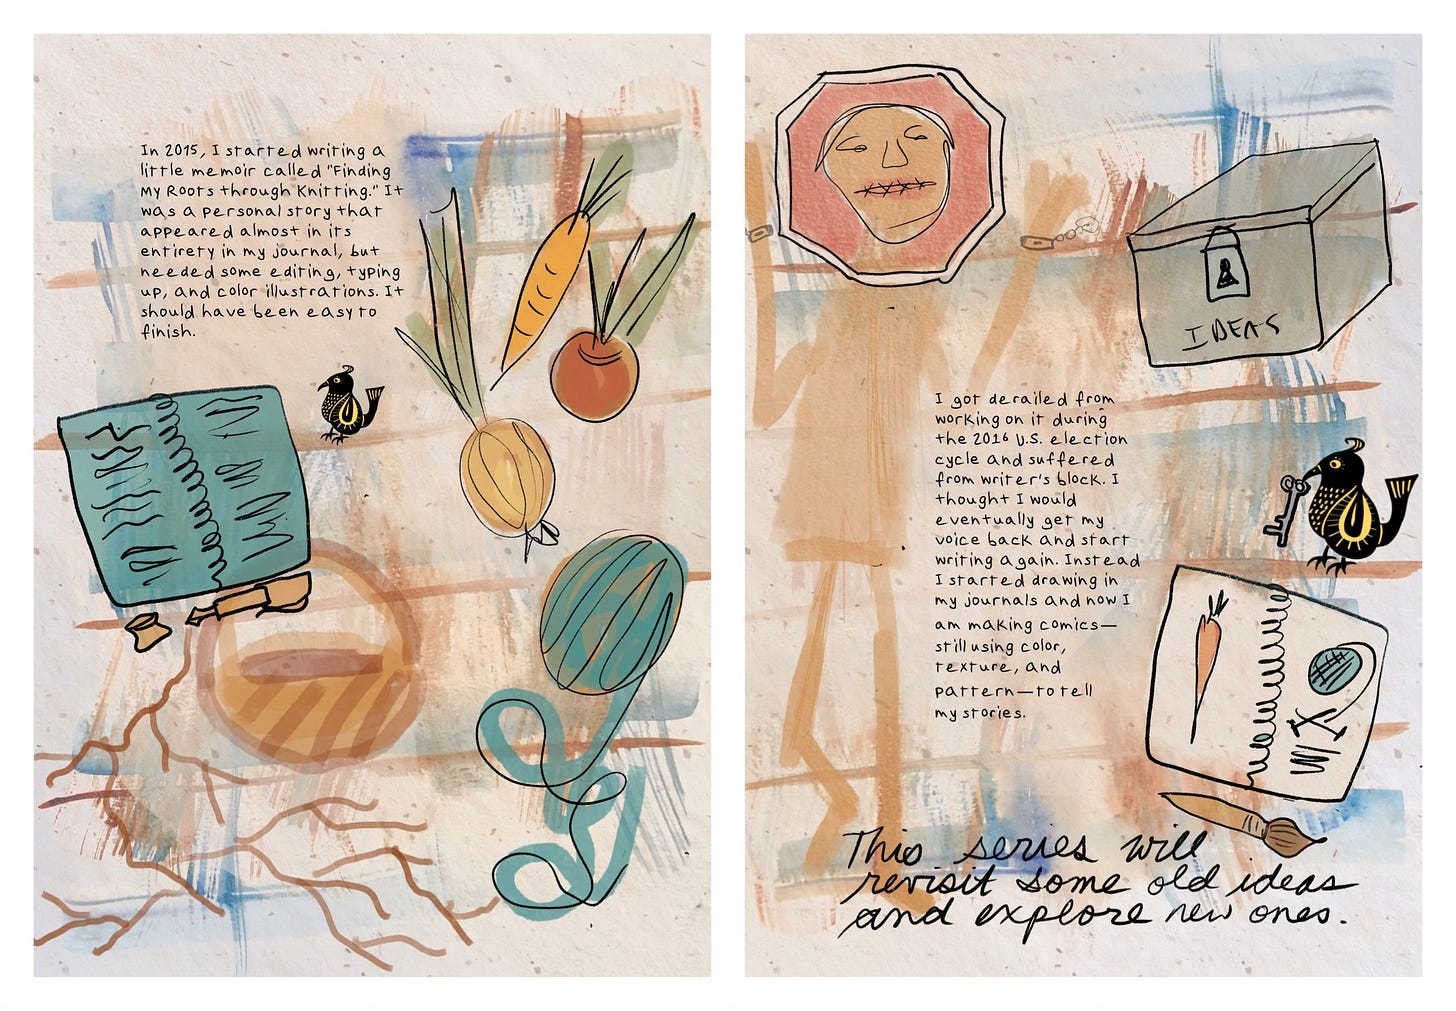 In 2015, I started writing a
little memoir called "Finding
My Roots through Knitting." It
was a personal story that
appeared almost in its
entirety in my journal, but
needed some editing, typing
up, and color illustrations. It
should have been easy to
finish.
IDEAS
I got derailed from
working on it during
the 2016 U.S. election
cycle and suffered
from writer's block. I
thought I would
eventually get my
voice back and start
writing again. Instead
I started drawing in
my journals and now I
am making comics—
still using color,
texture, and
pattern—to tell
my stories.
This series will
revisit some old ideas
and explore new ones.